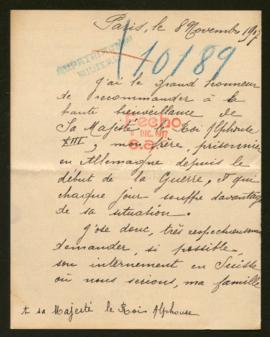 Paris, le 8 Novembre 1917
10/89
J'ai le grand honneur
de recommander à la
haute bienveillance de
Sa Majesté le Roi Alphonse
XIII, mon frère, prisonnier
en Allemagne depuis le
début de la Guerre, et qui
chaque jour souffre davantage
de sa situation.
J'ose donc, très respectueusement
demander, si possible,
son internement en Suisse
où nous serions, ma famille
à sa Majesté le Roi Alphonse